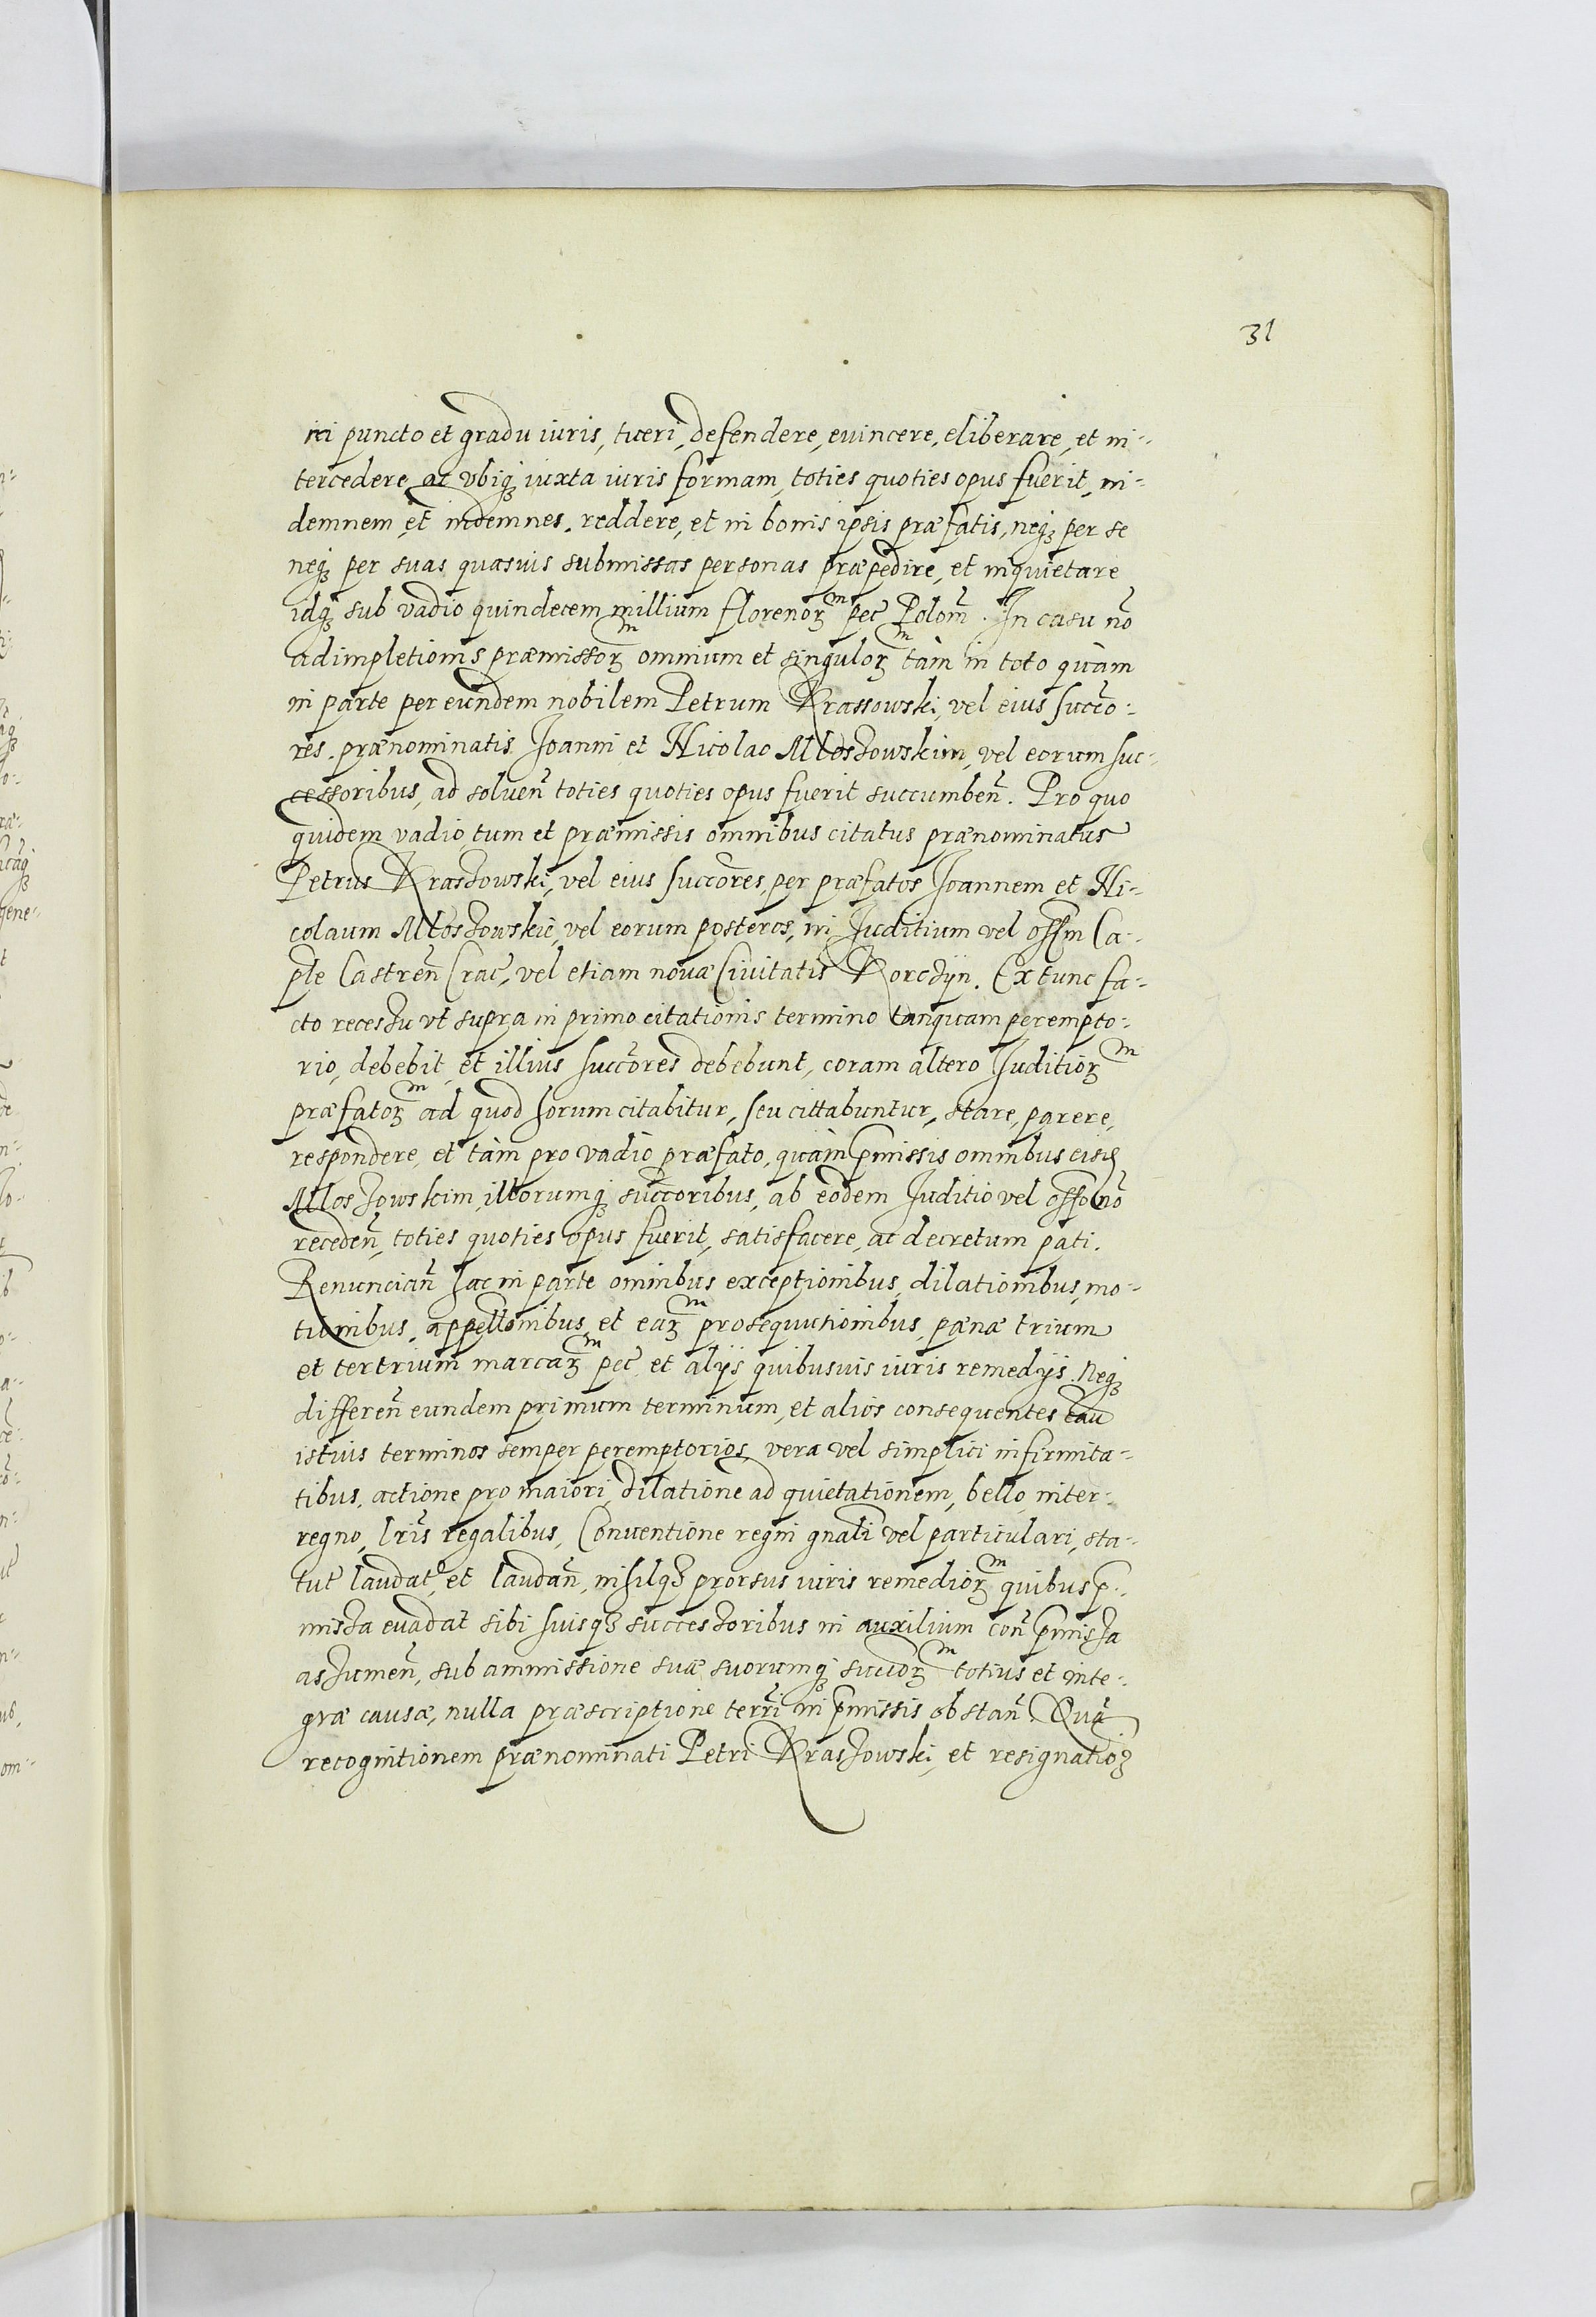 31
rei puncto et gradu iuris, tueri, defendere, euincere, eliberare, et in-
tercedere, ac vbiq₃ iuxta iuris formam, toties quoties opus fuerit, in-
demnem, et indemnes, reddere, et in bonis ipsis præfatis, neq₃ per se
neq₃ per suas quasuis submissas personas præpedire, et inquietare
idq₃ sub vadio quindecem millium florenorꝫᵐ pec̃ Polom̃. In casu nõ
adimpletionis præmissorꝫᵐ omnium et singulorꝫᵐ tàm in toto quàm
in parte per eundem nobilem Petrum Krassowski, vel eius succõ-
res, prænominatis Joanni et Nicolao Mloszowskim, vel eorum suc-
cessoribus, ad soluen̄ toties quoties opus fuerit succumben̄. Pro quo
quidem vadio tum et præmissis omnibus citatus prænominatus
Petrus Kraszowski, vel eius succõres, per præfatos Joannem et Ni-
colaum Mloszowskie, vel eorum posteros, in Juditium vel offm̃ Ca-
ple Castren̄ Crac̃, vel etiam nouæ Ciuitatis Korczÿn. Ex tunc fa-
cto recessu vt supra in primo citationis termino tanquam perempto-
rio, debebit, et illius succõres debebunt, coram altero Juditiorꝫᵐ
præfatorꝫᵐ ad quod forum citabitur, seu cittabuntur, stare, parere,
respondere, et tàm pro vadio præfato, quàm p̃missis omnibus eisđ
Mloszowskim, illorumq₃ succõribus, ab eodem Juditio vel offo nõ
receden̄, toties quoties opus fuerit, satisfacere, ac decretum pati.
Renuncian̄ hac in parte omnibus exceptionibus, dilationibus, mo-
tionibus, appellõnibus, et earꝫᵐ prosequutionibus, pænæ trium
et tertrium marcarꝫᵐ pec̃, et alÿs quibusuis iuris remedÿs. Neq₃
differen̄ eundem primum terminum, et alios consequentes cau
istius terminos semper peremptorios, vera vel simplici infirmita-
tibus, actione pro maiori, dilatione ad quietationem, bello, inter-
regno, lr̃is regalibus, Conuentione regni gnãli vel particulari, sta-
tut̃ laudat̃, et laudan̄, nihilq₃ prorsus iuris remediorꝫᵐ quibus p̃-
missa euadat sibi suisq₃ successoribus in auxilium con̄ p̃missa
assumen̄, sub ammissione suæ suorumq₃ succõrꝫᵐ totius et inte-
græ causæ, nulla præscriptione terrĩ in p̃missis obstan̄. Quã
recognitionem prænominati Petri Kraszowski, et resignatioꝫ